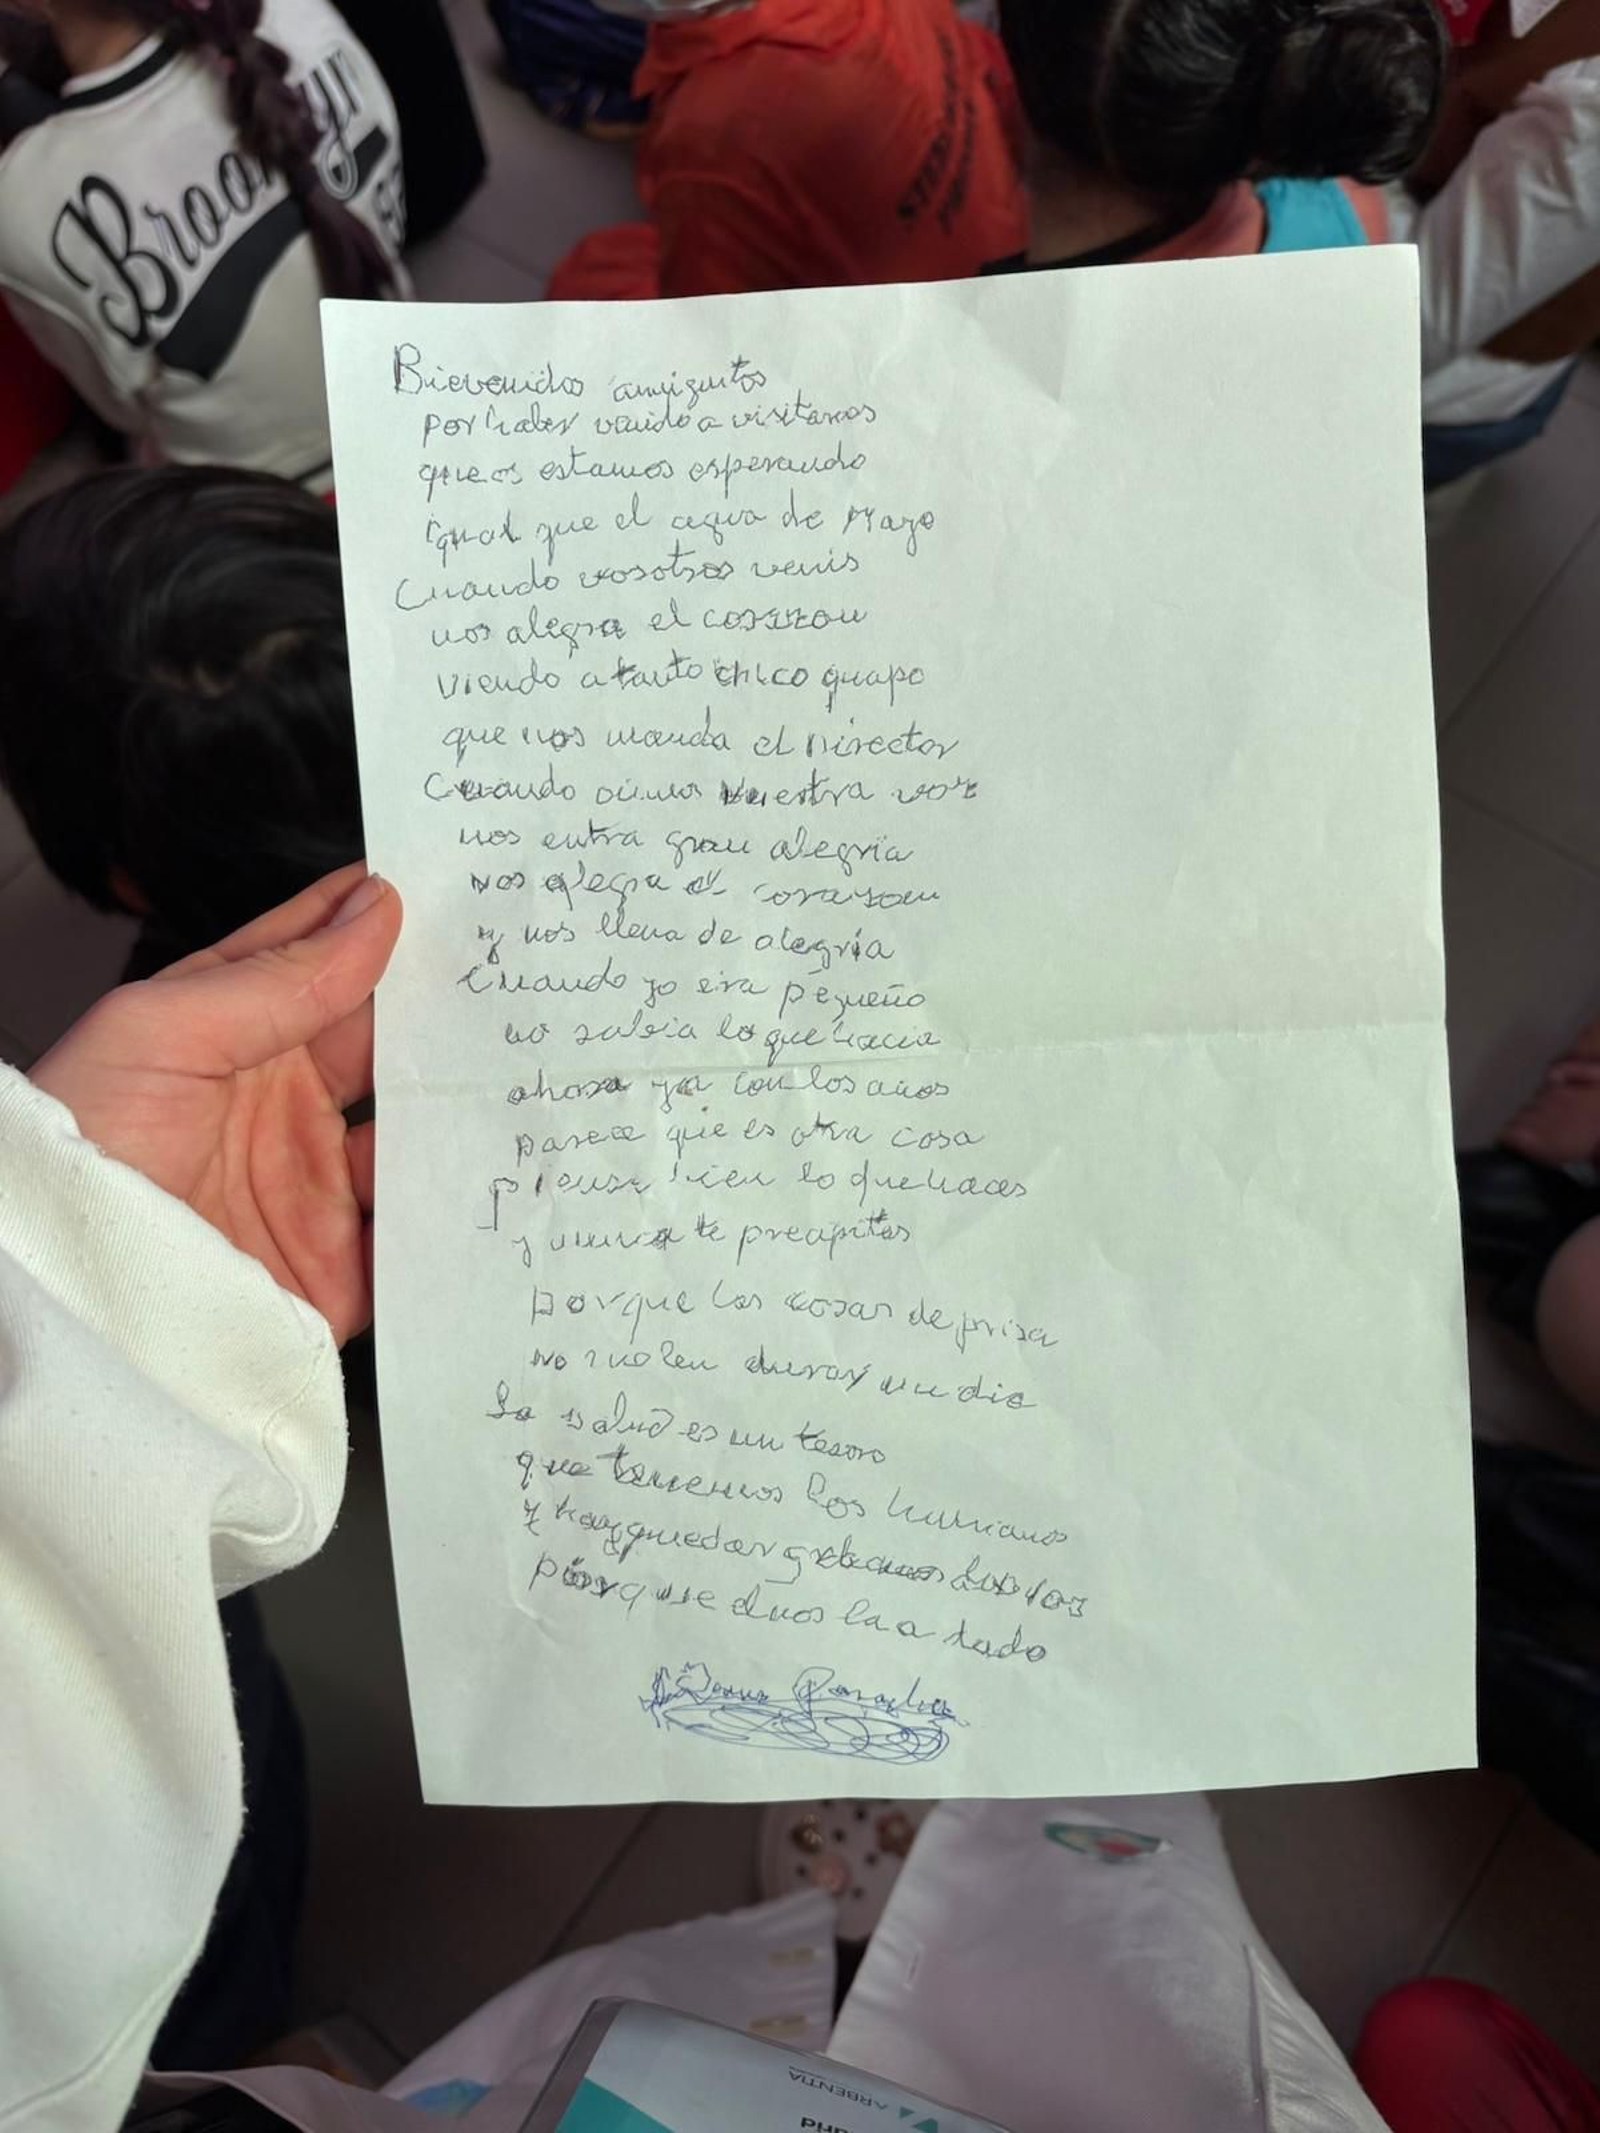 Brooklyn
Bievenidos amiguitos
por haber venido a visitarnos
que os estamos esperando
igual que el agua de Mayo
Cuando vosotros venis
nos alegra el corazon
viendo a tanto chico guapo
que nos manda el Director
Cuando oimos vuestra voz
nos entra gran alegria
nos alegra el corazon
y nos llena de alegría
Cuando yo era pequeño
no sabia lo que hacia
ahora ya con los años
parece que es otra cosa
piensa bien lo que haces
y nunca te precipites
porque las cosas de prisa
no suelen durar un dia
La salud es un tesoro
que tenemos los humanos
y hay que dar gracias
porque el nos la a dado
ARBENTIA